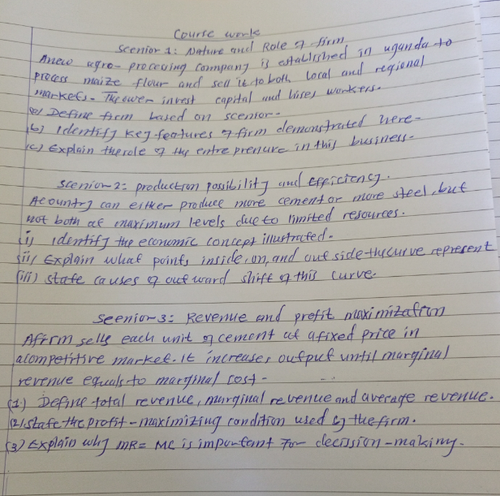 Course work
Scenior 1: Nature and Role of firm
Anew agro-processing company is established in uganda to
process maize flour and sell it to both local and regional
markets. The owner invest capital and hires workers.
(a) Define firm based on scenior.
b) Identify key features of firm demonstrated here.
(c) Explain the role of the entreprenure in this business.
Scenior 2: production posibility and efficiency.
A country can either produce more cement or more steel, but
not both at maximum levels due to limited resources.
(i) Identify the economic concept illustrated.
(ii) Explain what points inside, on, and out side the curve represent
(iii) State causes of out ward shift of this curve.
Scenior 3: Revenue and profit maximization
A firm sells each unit of cement at a fixed price in
a competitive market. it increases output until marginal
revenue equals to marginal cost.
(1) Define total revenue, marginal revenue and average revenue.
(2) State the profit-maximizing condition used by the firm.
(3) Explain why MR = MC is important for decission-making.